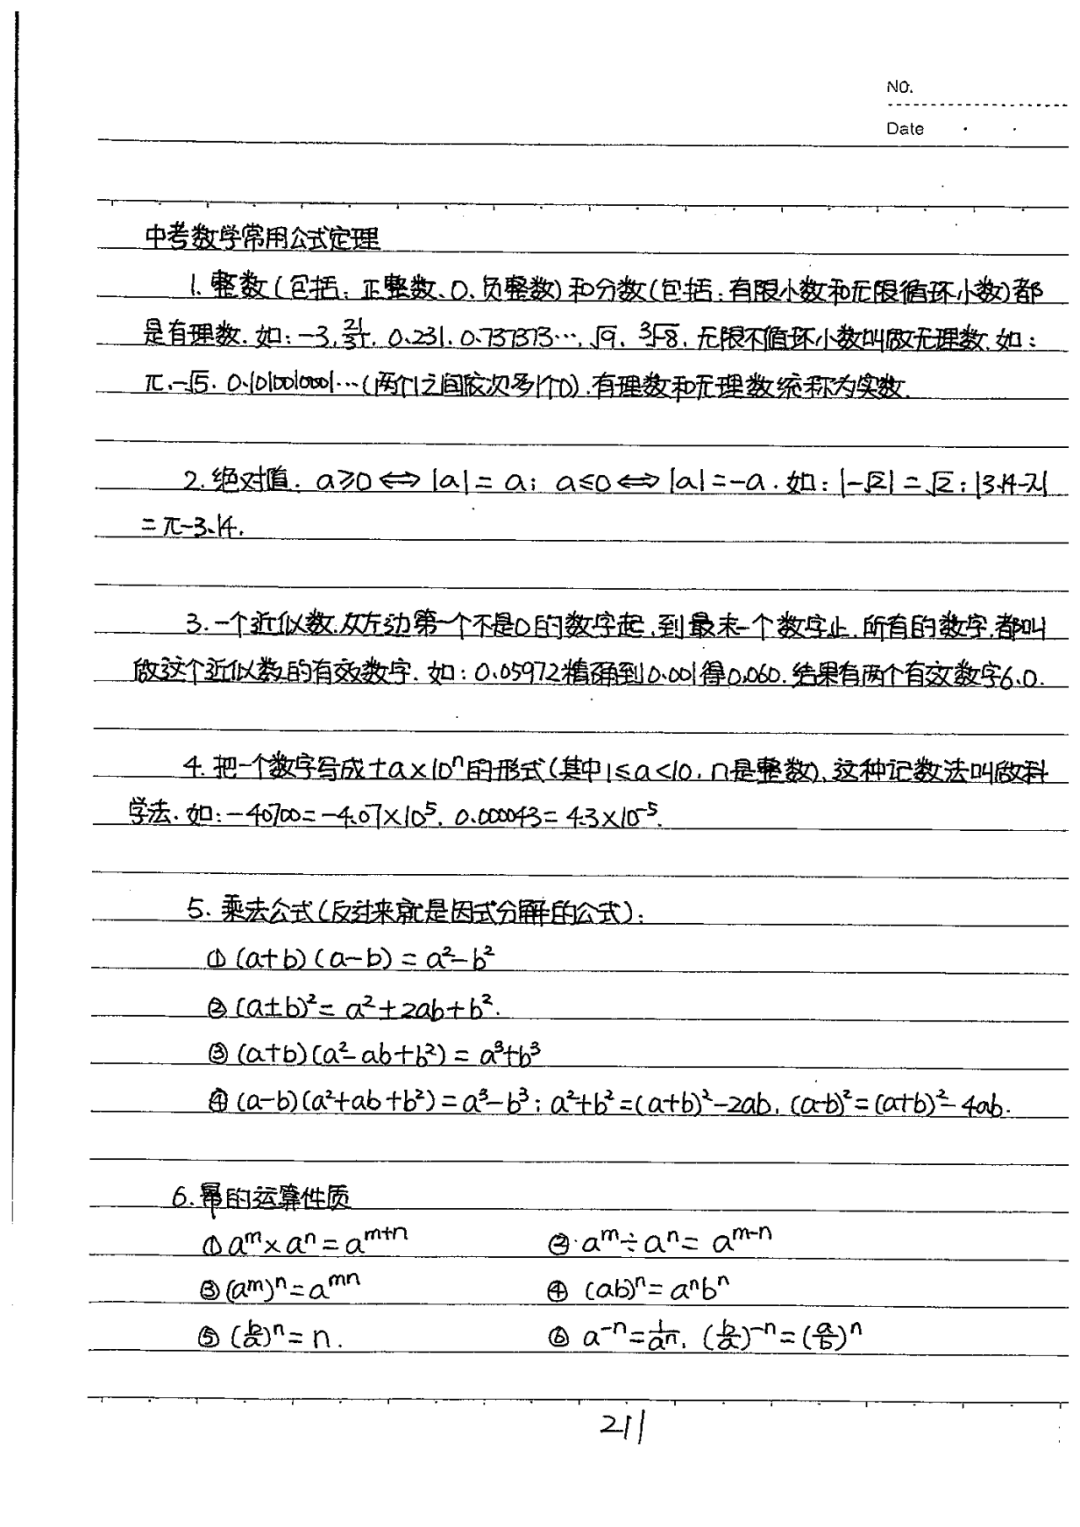 NO.
Date
中考数学常用公式定理
1. 整数(包括:正整数、0、负整数)和分数(包括:有限小数和无限循环小数)都
是有理数. 如:-3, 21/31, 0.231, 0.737373…, √9, ∛-8. 无限不循环小数叫做无理数. 如:
π, -√5, 0.1010010001…(两个1之间依次多1个0). 有理数和无理数统称为实数.
2. 绝对值: a≥0⇔|a|=a; a≤0⇔|a|=-a. 如: |-√2|=√2; |3.14-π|
=π-3.14.
3. 一个近似数,从左边第一个不是0的数字起,到最末一个数字止,所有的数字,都叫
做这个近似数的有效数字. 如: 0.05972精确到0.001得0.060, 结果有两个有效数字6.0.
4. 把一个数字写成+a×10ⁿ的形式(其中1≤a<10, n是整数), 这种记数法叫做科
学法. 如: -40700=-4.07×10⁵. 0.000043=4.3×10⁻⁵.
5. 乘法公式(反过来就是因式分解的公式):
① (a+b)(a-b)=a²-b²
② (a±b)²=a²±2ab+b².
③ (a+b)(a²-ab+b²)=a³+b³
④ (a-b)(a²+ab+b²)=a³-b³; a²+b²=(a+b)²-2ab, (a-b)²=(a+b)²-4ab.
6. 幂的运算性质
① aᵐ×aⁿ=aᵐ⁺ⁿ ② aᵐ÷aⁿ=aᵐ⁻ⁿ
③ (aᵐ)ⁿ=aᵐⁿ ④ (ab)ⁿ=aⁿbⁿ
⑤ (b/a)ⁿ=n. ⑥ a⁻ⁿ=1/aⁿ, (b/a)⁻ⁿ=(a/b)ⁿ
211